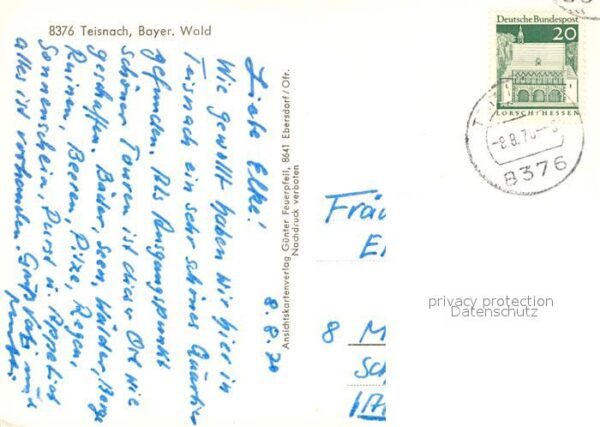 8376 Teisnach, Bayer. Wald
8.8.70
Liebe Elke!
Wie gewollt haben wir hier in
Teisnach ein sehr schönes Quartier
gefunden. Als Ausgangspunkt
schöner Touren ist dieser Ort wie
geschaffen. Bäder, Seen, Wälder, Berge
Ruinen, Beeren, Pilze, Regen,
Sonnenschein, Durst u. Appetit
alles ist vorhanden. Gruß
Ansichtskartenverlag Günter Feuerpfeil, 8641 Ebersdorf/Ofr.
Nachdruck verboten
Deutsche Bundespost
20
LORSCH/HESSEN
-8.8.70
8376
Fräu
El
8 M
Sch
privacy protection
Datenschutz